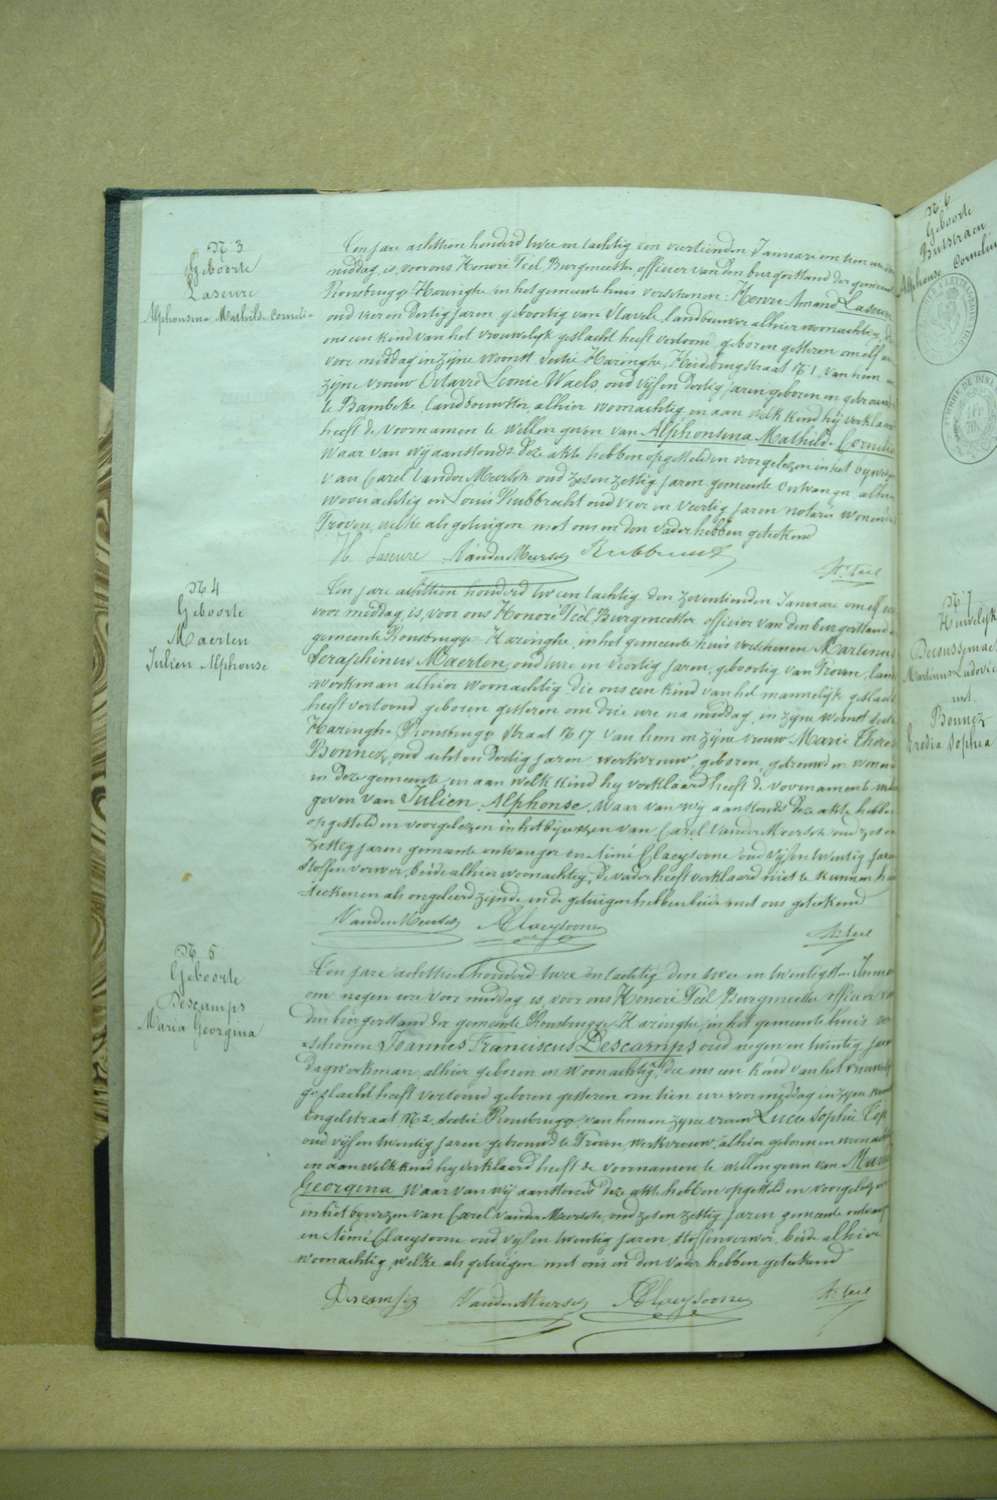 N. 3
Geboorte
Laseure
Alphonsina Mathilde Cornelie
Ten jare achttien honderd twee en tachtig den veertienden Januari om tien ure voor
middag, is voor ons Honoré Feel Burgmeester, officier van den burgerstand der gemeente
Rousbrugge Haringhe in het gemeente huis verschenen: Henri Amand Laseure
oud vier en dertig jaren geboortig van Stavele, landbouwer alhier woonachtig, die
ons een kind van het vrouwelijk geslacht heeft vertoond geboren gisteren om elf ure
voor middag in zijne woonst sectie Haringhe, straat N. 1. van hem en
zijne vrouw Octavie Leonie Waels, oud vijf en dertig jaren geboren en getrouwd
te Bambeke landbouwster, alhier woonachtig en aan welk kind hij verklaard
heeft de voornamen te willen geven van Alphonsina Mathilde Cornelie
waar van wij aanstonds deze akte hebben opgesteld en voorgelezen in het bijwezen
van Carel Vander Meersch oud zes en zestig jaren gemeente ontvanger alhier
woonachtig en Louis Rubbrecht oud vier en veertig jaren notaris wonende
Proven, welke als getuigen met ons en den vader hebben geteekend
H. Laseure VanderMeersch Rubbrecht H. Feel
N. 4
Geboorte
Maerten
Julien Alphonse
Ten jare achttien honderd twee en tachtig den zeventienden Januari om elf ure
voor middag is, voor ons Honoré Feel Burgmeester officier van den burgerstand der
gemeente Rousbrugge Haringhe, in het gemeente huis verschenen Martinus
Seraphinus Maerten, oud en veertig jaren, geboortig van Proven, land
werkman alhier woonachtig die ons een kind van het mannelijk geslacht
heeft vertoond, geboren gisteren om drie ure na middag, in zijne woonst sectie
Haringhe Rousbrugge straat N. 17 van hem en zijne vrouw Marie Therese
Bonnez, oud acht en dertig jaren werkvrouw, geboren, getrouwd en wonende
in deze gemeente, en aan welk kind hij verklaard heeft de voornamen te willen
geven van Julien Alphonse. Waar van wij aanstonds deze akte hebben
opgesteld en voorgelezen in het bijwezen van Carel VanderMeersch oud zes en
zestig jaren gemeente ontvanger en Aimé Claeysoone oud vijf en twintig jaren
stoffenverwer, beide alhier woonachtig, de vader heeft verklaard niet te kunnen
teekenen als ongeleerd zijnde, en de getuigen hebben beide met ons geteekend
VanderMeersch AClaeysoone H. Feel
N. 5
Geboorte
Descamps
Maria Georgina
Ten jare achttien honderd twee en tachtig den twee en twintigsten Januari
om negen ure voor middag is, voor ons Honoré Feel Burgmeester officier van
den burgerstand der gemeente Rousbrugge Haringhe, in het gemeente huis ver
schenen Joannes Franciscus Descamps oud negen en twintig jaren
dagwerkman, alhier geboren en woonachtig, die ons een kind van het vrouwelijk
geslacht heeft vertoond geboren gisteren om tien ure voor middag in zijne woonst
Engelstraat N. 2. sectie Rousbrugge van hem en zijne vrouw Lucie Sophie Top
oud vijf en twintig jaren getrouwd te Proven, werkvrouw, alhier geboren en woonachtig
en aan welk kind hij verklaard heeft de voornamen te willen geven van Maria
Georgina. Waar van wij aanstonds deze akte hebben opgesteld en voorgelezen
in het bijwezen van Carel VanderMeersch, oud zes en zestig jaren gemeente ontvanger
en Aimé Claeysoone oud vijf en twintig jaren, stoffenverwer, beide alhier
woonachtig, welke als getuigen met ons en den vader hebben geteekend
VanderMeersch AClaeysoone H. Feel
N. 6
Geboorte
Alphonse Cornelius
N. 7
Huwelijk
Martinus Ludovic
met
Bonnez
Sophia